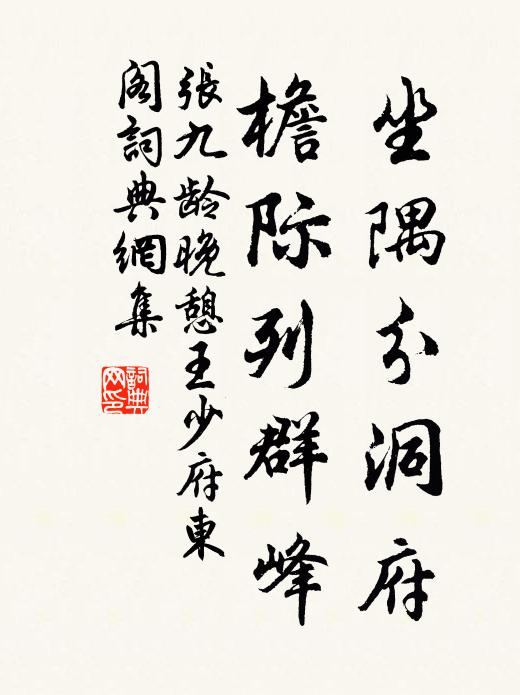 坐隅分洞府
檐际列群峰
張九龄晚憩王少府東
阁詞典網集
詞典网印